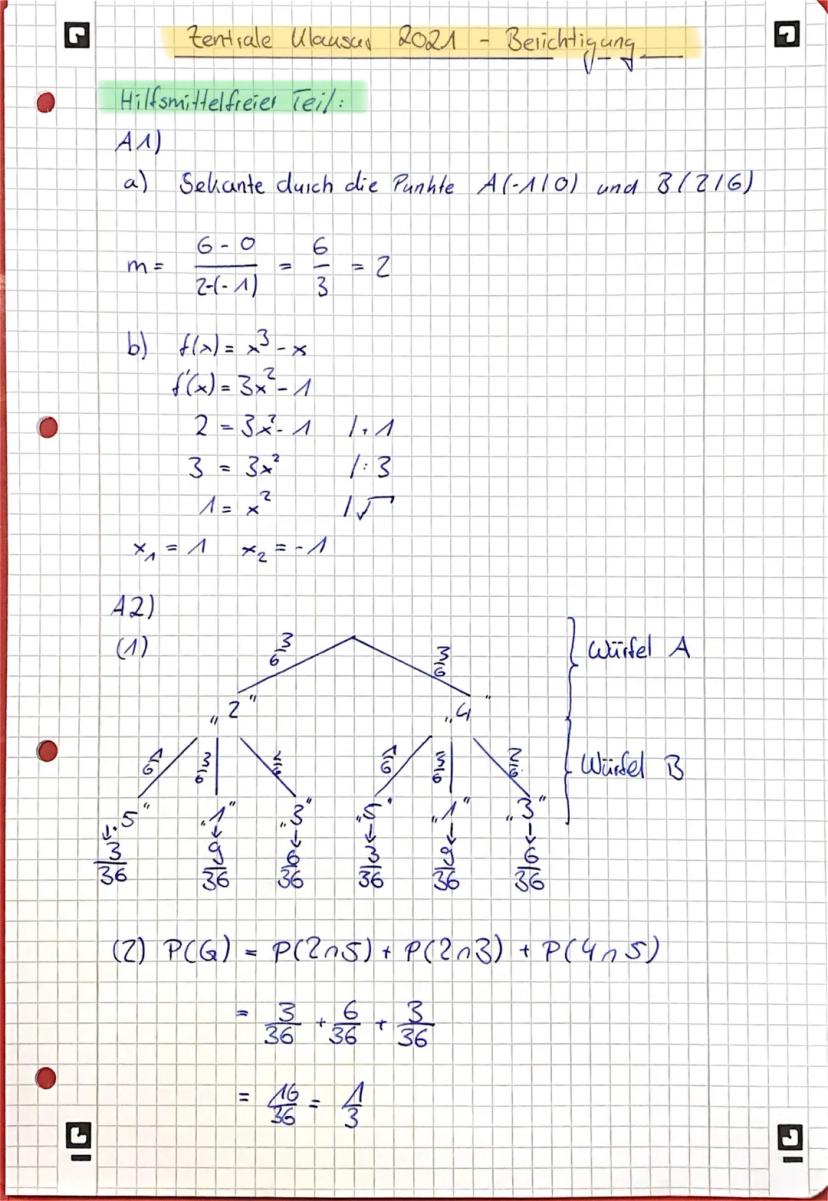 Zentrale Klausur 2021 - Berichtigung
Hilfsmittelfreier Teil:
A1)
a) Sekante durch die Punkte A(-1|0) und B(2|6)
m = \frac{6-0}{2-(-1)} = \frac{6}{3} = 2
b) f(x) = x³ - x
f'(x) = 3x² - 1
2 = 3x² - 1 |+1
3 = 3x² |:3
1 = x² |√
x₁ = 1 x₂ = -1
A2)
(1) \frac{3}{6} \frac{3}{6} Würfel A
„2" „4"
\frac{1}{6} \frac{3}{6} \frac{2}{6} \frac{1}{6} \frac{3}{6} \frac{2}{6} Würfel B
„5" „1" „3" „5" „1" „3"
↓ ↓ ↓ ↓ ↓ ↓
\frac{3}{36} \frac{9}{36} \frac{6}{36} \frac{3}{36} \frac{9}{36} \frac{6}{36}
(2) P(G) = P(2∩5) + P(2∩3) + P(4∩5)
= \frac{3}{36} + \frac{6}{36} + \frac{3}{36}
= \frac{16}{36} = \frac{1}{3}